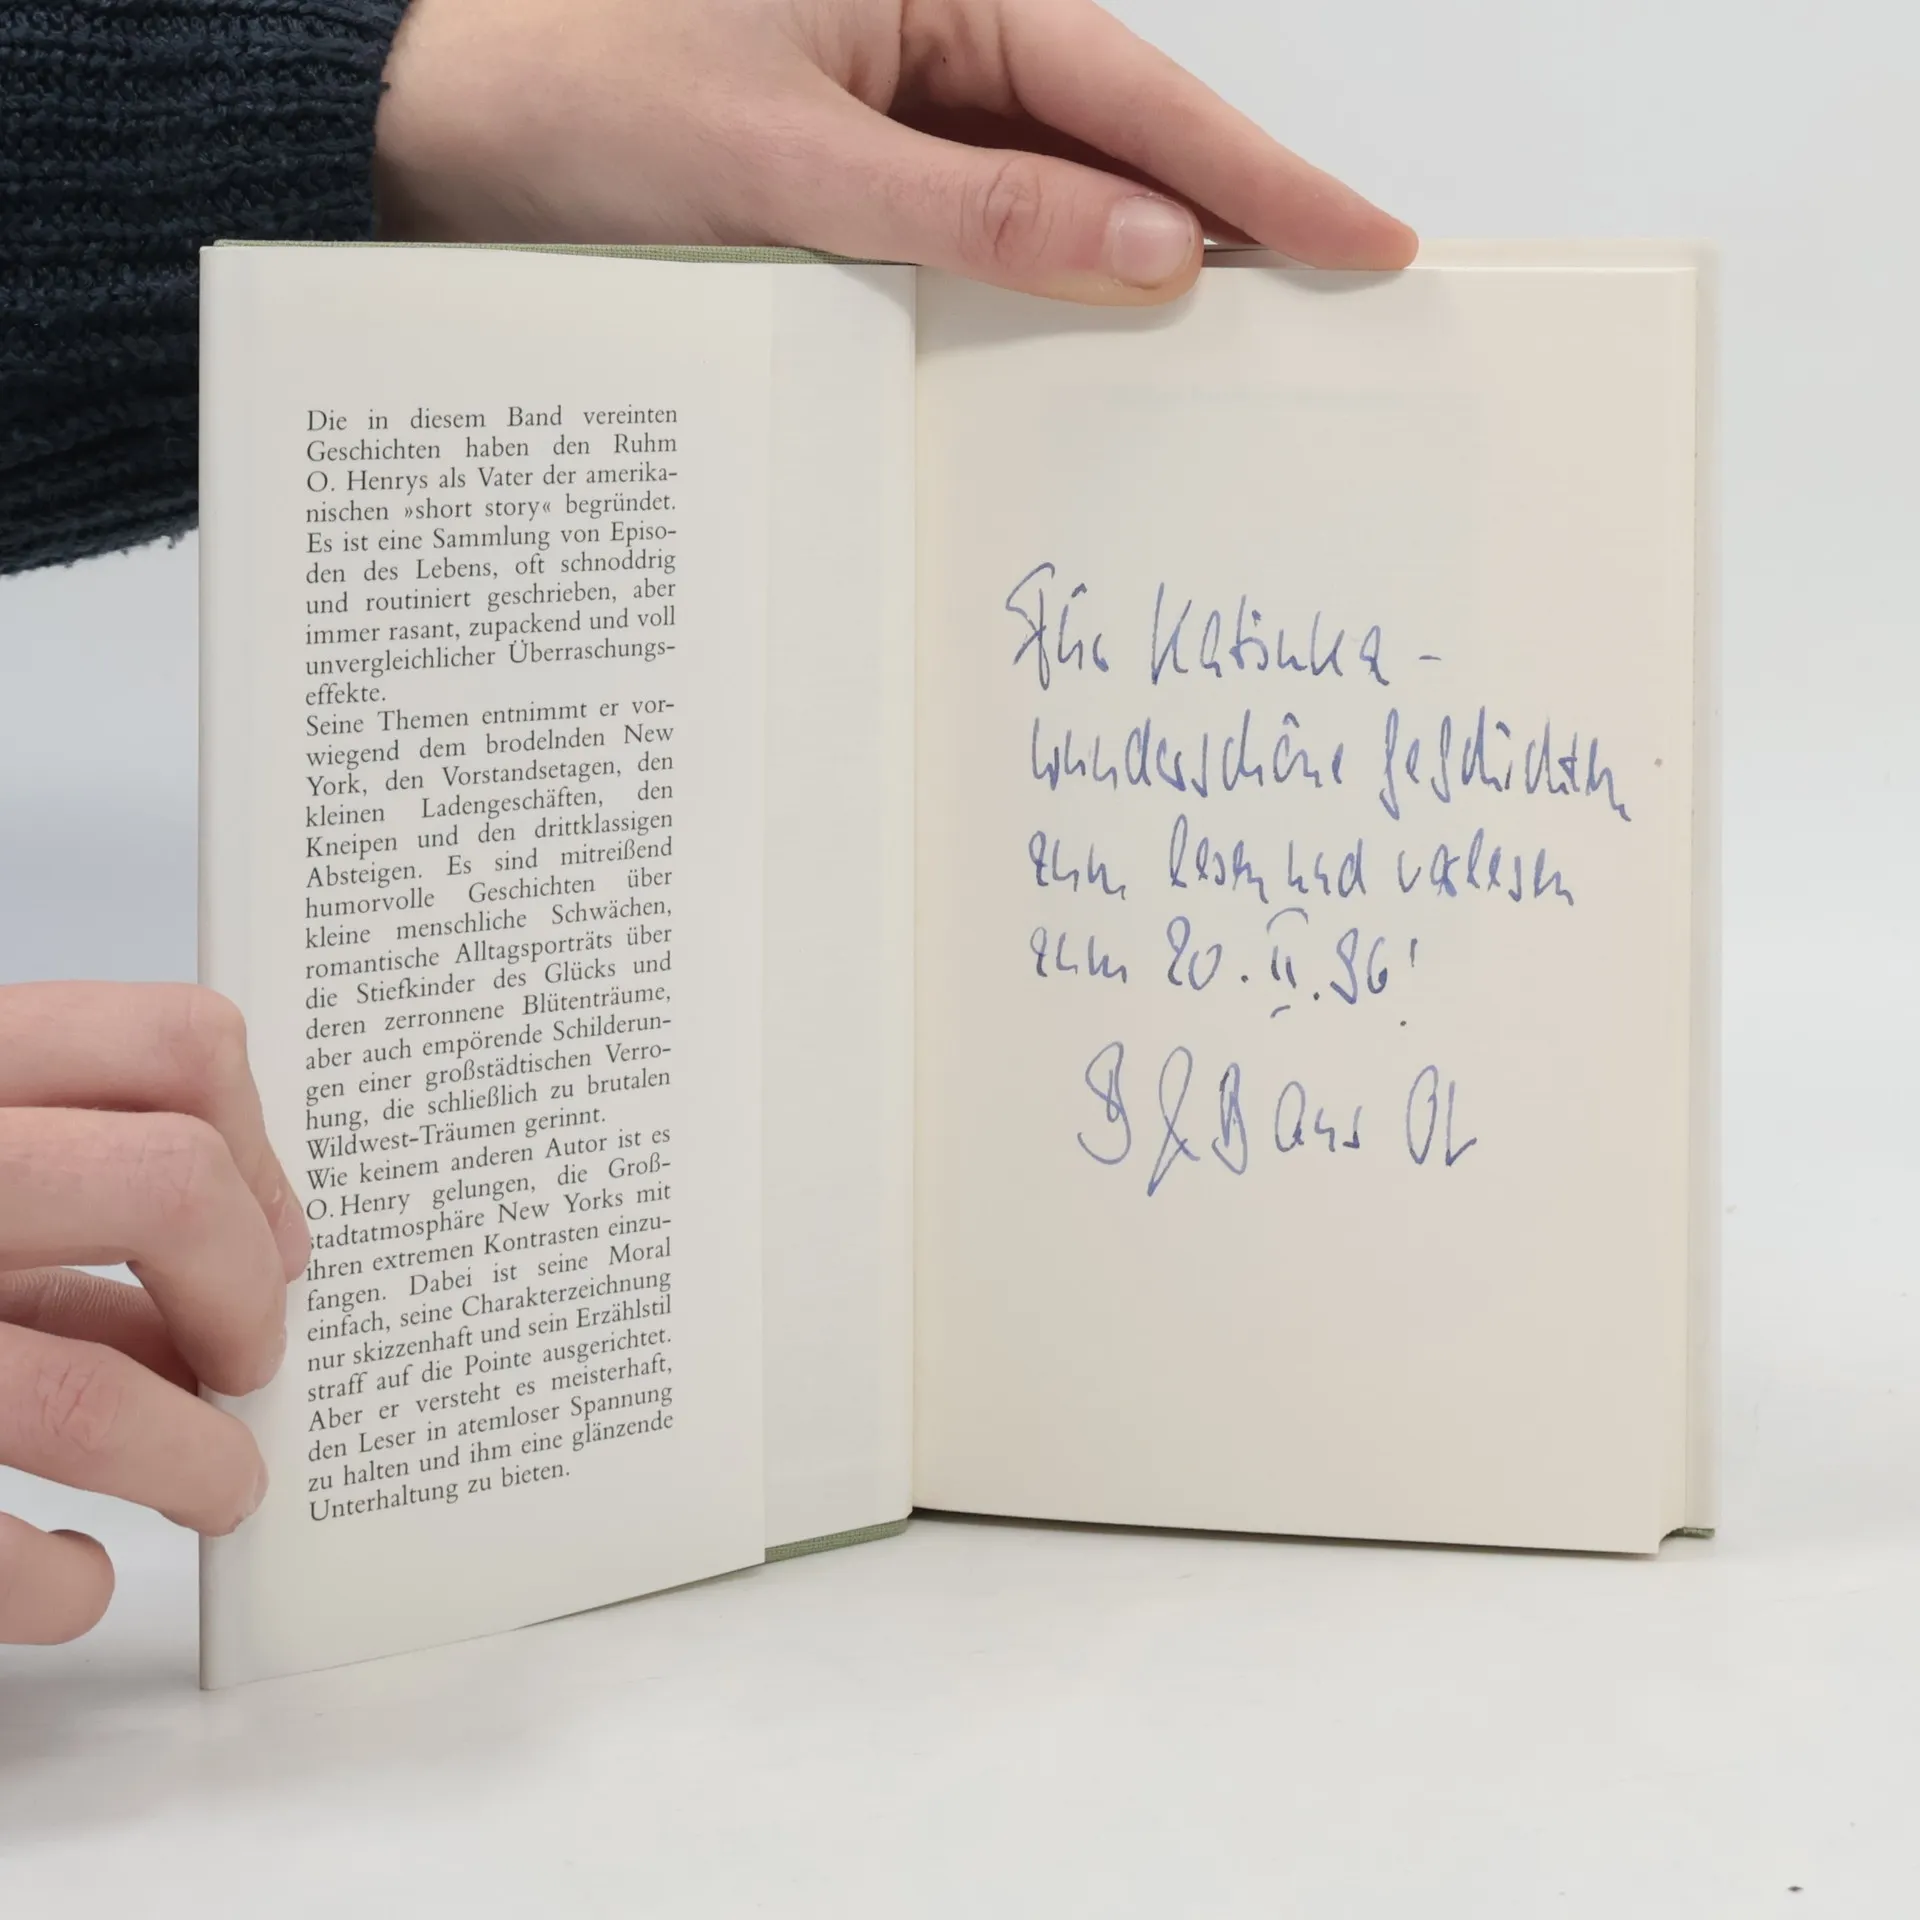 Die in diesem Band vereinten
Geschichten haben den Ruhm
O. Henrys als Vater der amerika-
nischen »short story« begründet.
Es ist eine Sammlung von Episo-
den des Lebens, oft schnoddrig
und routiniert geschrieben, aber
immer rasant, zupackend und voll
unvergleichlicher Überraschungs-
effekte.
Seine Themen entnimmt er vor-
wiegend dem brodelnden New
York, den Vorstandsetagen, den
kleinen Ladengeschäften, den
Kneipen und den drittklassigen
Absteigen. Es sind mitreißend
humorvolle Geschichten über
kleine menschliche Schwächen,
romantische Alltagsporträts über
die Stiefkinder des Glücks und
deren zerronnene Blütenträume,
aber auch empörende Schilderun-
gen einer großstädtischen Verro-
hung, die schließlich zu brutalen
Wildwest-Träumen gerinnt.
Wie keinem anderen Autor ist es
O. Henry gelungen, die Groß-
stadtatmosphäre New Yorks mit
ihren extremen Kontrasten einzu-
fangen. Dabei ist seine Moral
einfach, seine Charakterzeichnung
nur skizzenhaft und sein Erzählstil
straff auf die Pointe ausgerichtet.
Aber er versteht es meisterhaft,
den Leser in atemloser Spannung
zu halten und ihm eine glänzende
Unterhaltung zu bieten.
Für Katinka -
wunderschöne Geschichten
zum lesen und vorlesen
zum 20. II. 96!
B & B aus OL